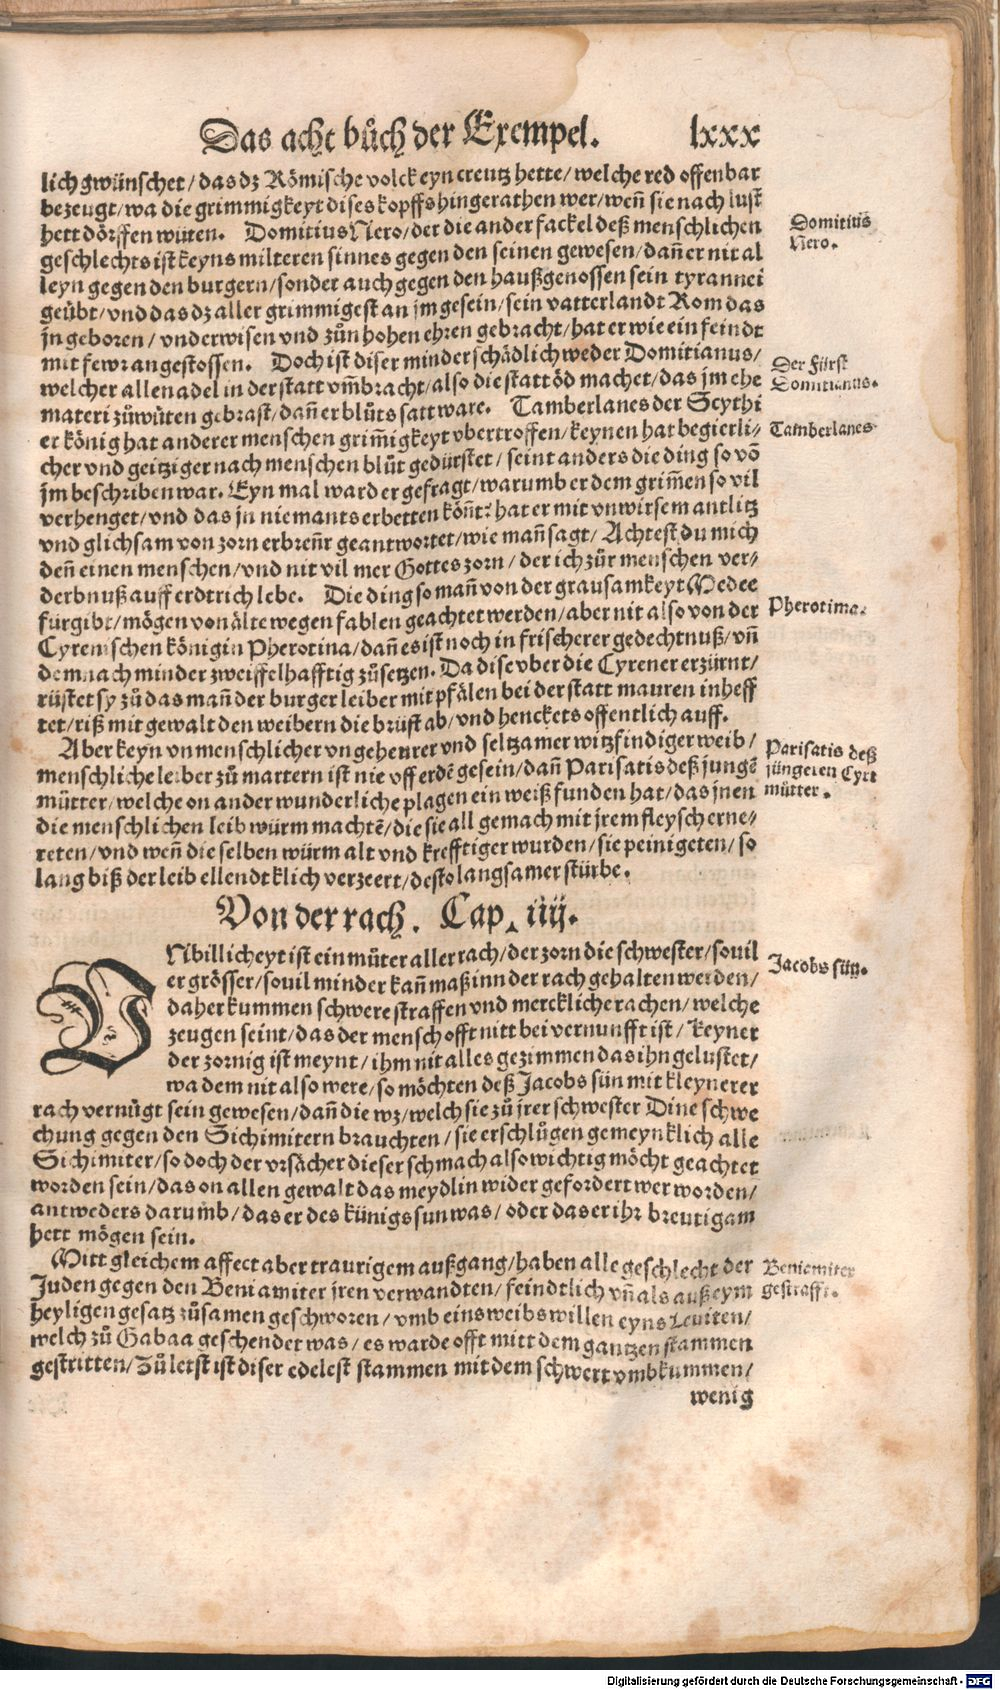 Das acht bůch der Exempel. lxxx
lich gwünschet/ das dz Römische volck eyn creutz hette/ welche red offenbar
bezeugt/ wa die grimmigkeyt dises kopffs hingerathen wer/ weñ sie nach lust
hett dörffen wüten. Domitius Nero/ der die ander fackel deß menschlichen
Domitius
Nero.
geschlechts ist keyns milteren sinnes gegen den seinen gewesen/ dañ er nit al
leyn gegen den burgern/ sonder auch gegen den haußgenossen sein tyrannei
geübt/ vnd das dz aller grimmigest an jm gesein/ sein vatterlandt Rom das
jn geboren/ vnderwisen vnd zůn hohen ehren gebracht/ hat er wie ein feindt
mit fewr angestossen. Doch ist diser minder schädlich weder Domitianus/
Der Fürst
Domitianus.
welcher allen adel in der statt vm̃bracht/ also die statt öd machet/ das jm ehe
materi zůwüten gebrast/ dañ er blůts satt ware. Tamberlanes der Scythi
Tamberlanes
er könig hat anderer menschen grim̃igkeyt vbertroffen/ keynen hat begierli-
cher vnd geitziger nach menschen blůt gedürstet/ seint anders die ding so võ
jm beschriben war. Eyn mal ward er gefragt/ warumb er dem grim̃en so vil
verhenget/ vnd das jn niemants erbetten köñt? hat er mit vnwirsem antlitz
vnd glichsam von zorn erbreñt geantwortet/ wie mañ sagt/ Achtest du mich
deñ einen menschen/ vnd nit vil mer Gottes zorn/ der ich zůr menschen ver-
derbnuß auff erdtrich lebe. Die ding so mañ von der grausamkeyt Medee
fürgibt/ mögen von älte wegen fablen geachtet werden/ aber nit also von der
Pherotima.
Cyrenischen königin Pherotina/ dañ es ist noch in frischerer gedechtnuß/ vñ
demnach minder zweiffelhafftig zůsetzen. Da dise vber die Cyrener erzürnt/
rüstet sy zů das mañ der burger leiber mit pfälen bei der statt mauren inheff
tet/ riß mit gewalt den weibern die brüst ab/ vnd henckets offentlich auff.
Aber keyn vnmenschlicher vngeheurer vnd seltzamer witzfindiger weib/
Parisatis deß
jüngeren Cyri
můtter.
menschliche leiber zů martern ist nie vff erdẽ gesein/ dañ Parisatis deß jungẽ
můtter/ welche on ander wunderliche plagen ein weiß funden hat/ das jnen
die menschlichen leib würm machtẽ/ die sie all gemach mit jrem fleysch erne-
reten/ vnd weñ die selben würm alt vnd krefftiger wurden/ sie peinigeten/ so
lang biß der leib ellendtklich verzeert/ desto langsamer stürbe.
Von der rach. Cap. iiij.
VNbillicheyt ist ein můter aller rach/ der zorn die schwester/ souil
Jacobs sün.
er grösser/ souil minder kañ maß inn der rach gehalten werden/
daher kummen schwere straffen vnd merckliche rachen/ welche
zeugen seint/ das der mensch offt nitt bei vernunfft ist/ keyner
der zornig ist meynt/ ihm nit alles gezimmen das ihn gelustet/
wa dem nit also were/ so möchten deß Jacobs sün mit kleynerer
rach vernügt sein gewesen/ dañ die wz/ welch sie zů jrer schwester Dine schwe
chung gegen den Sichimitern brauchten/ sie erschlůgen gemeynklich alle
Sichimiter/ so doch der vrsächer dieser schmach also wichtig möcht geachtet
worden sein/ das on allen gewalt das meydlin wider gefordert wer worden/
antweders darumb/ das er des künigs sun was/ oder das er ihr breutigam
hett mögen sein.
Mitt gleichem affect aber traurigem außgang/ haben alle geschlecht der
Beniamiter
gestrafft.
Juden gegen den Beniamiter jren verwandten/ feindtlich vñ als auß eym
heyligen gesatz zůsamen geschworen/ vmb eins weibs willen eyns Leuiten/
welch zů Gabaa geschendet was/ es warde offt mitt dem gantzen stammen
gestritten/ Zů letst ist diser edelest stammen mit dem schwert vmbkummen/
wenig
Digitalisierung gefördert durch die Deutsche Forschungsgemeinschaft - DFG